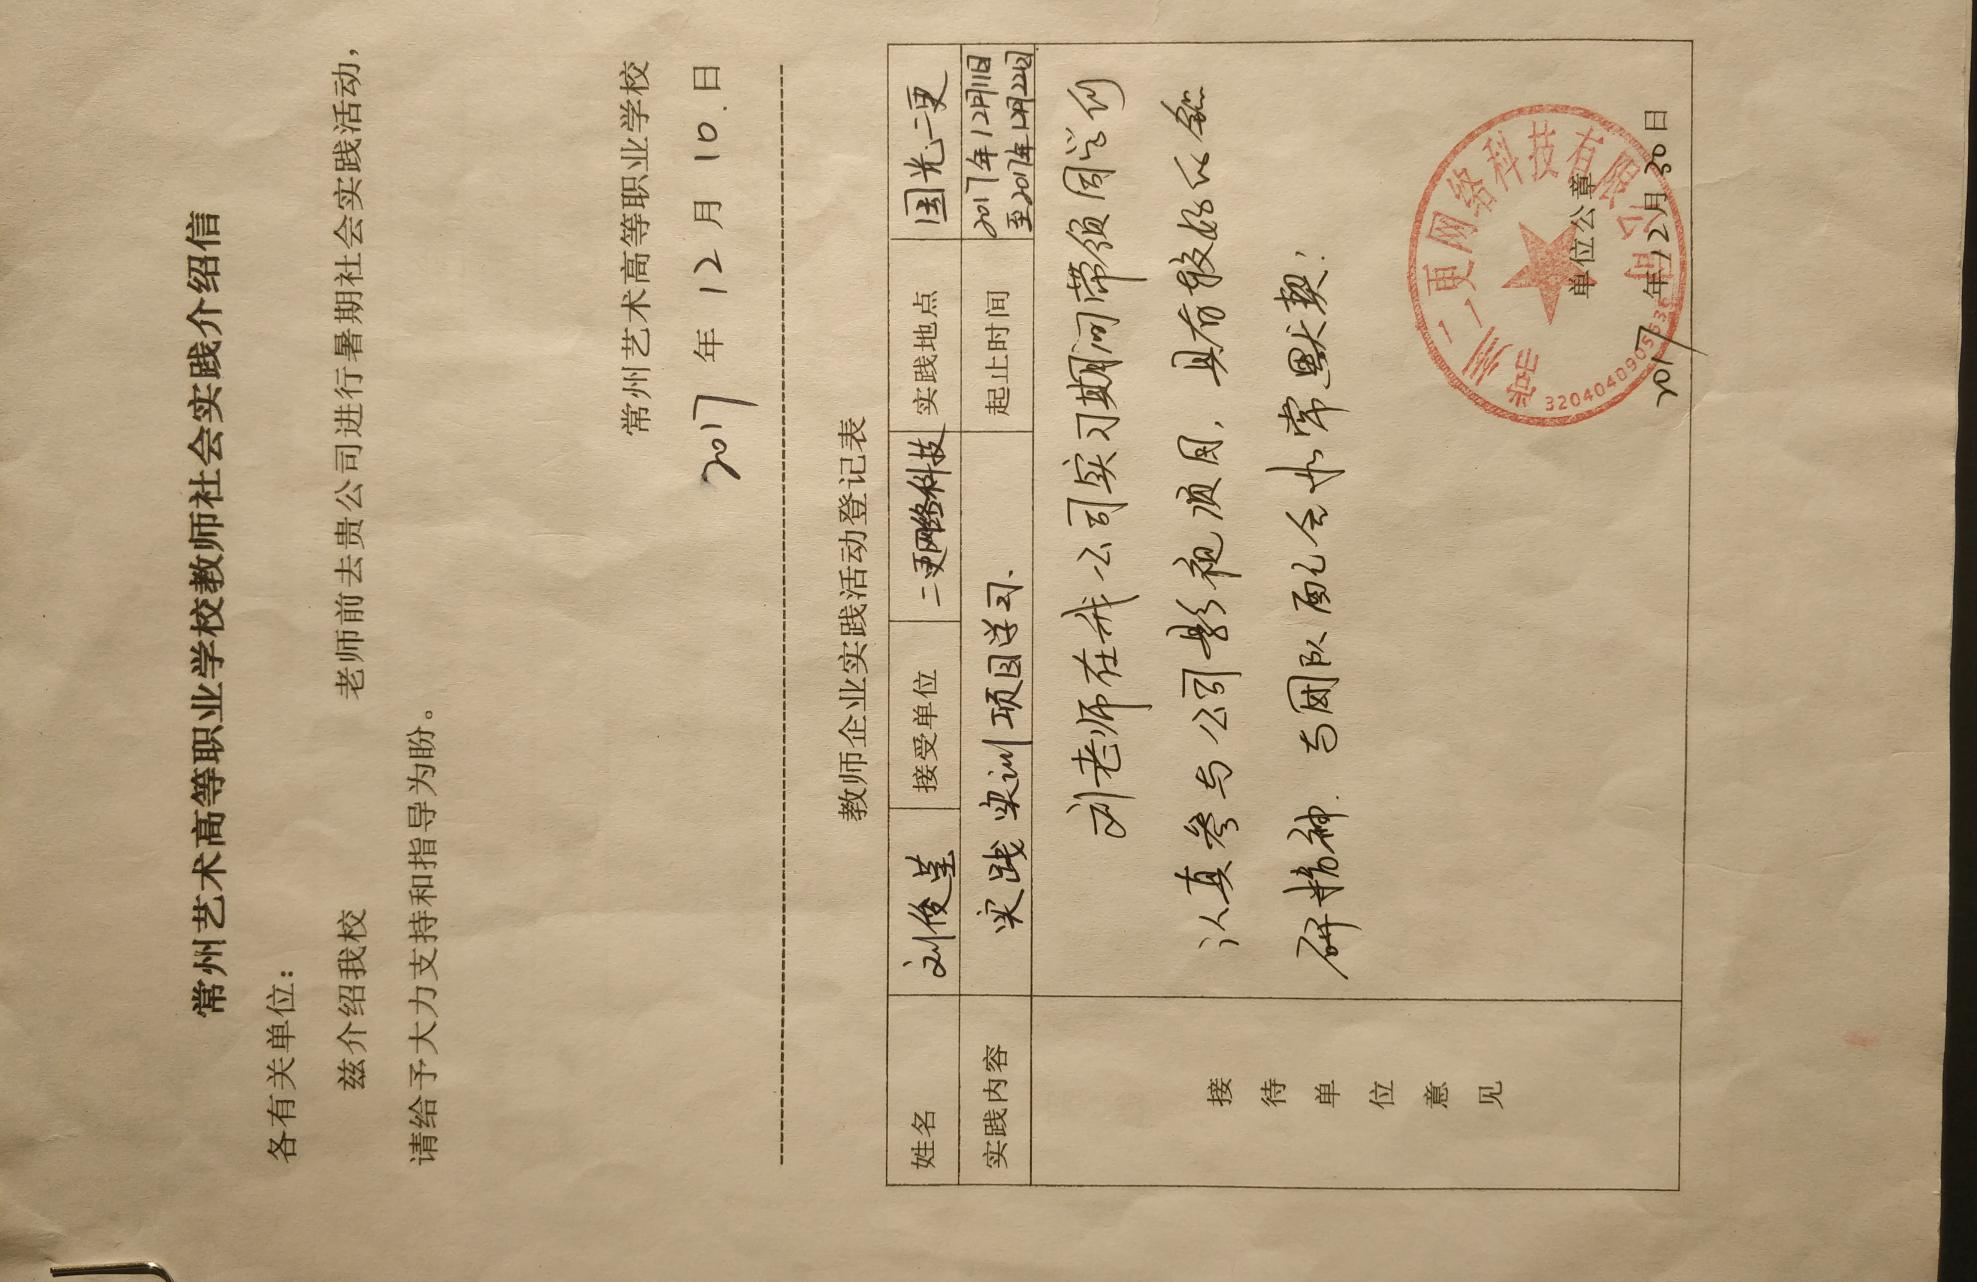 常州艺术高等职业学校教师社会实践介绍信
各有关单位:
兹介绍我校 老师前去贵公司进行暑期社会实践活动,
请给予大力支持和指导为盼。
常州艺术高等职业学校
2017年12月10日
教师企业实践活动登记表
姓名 刘俊 接受单位 二更网络科技 实践地点 国光二更
实践内容 实践实训项目学习. 起止时间 2017年12月11日
至2017年12月22日
接待单位意见
刘老师在我公司实习期间带领同学们
认真参与公司影视项目,具有较好的钻
研精神.与团队配合非常默契!
常州二更网络科技有限公司
3204040905
单位公章
2017年12月30日